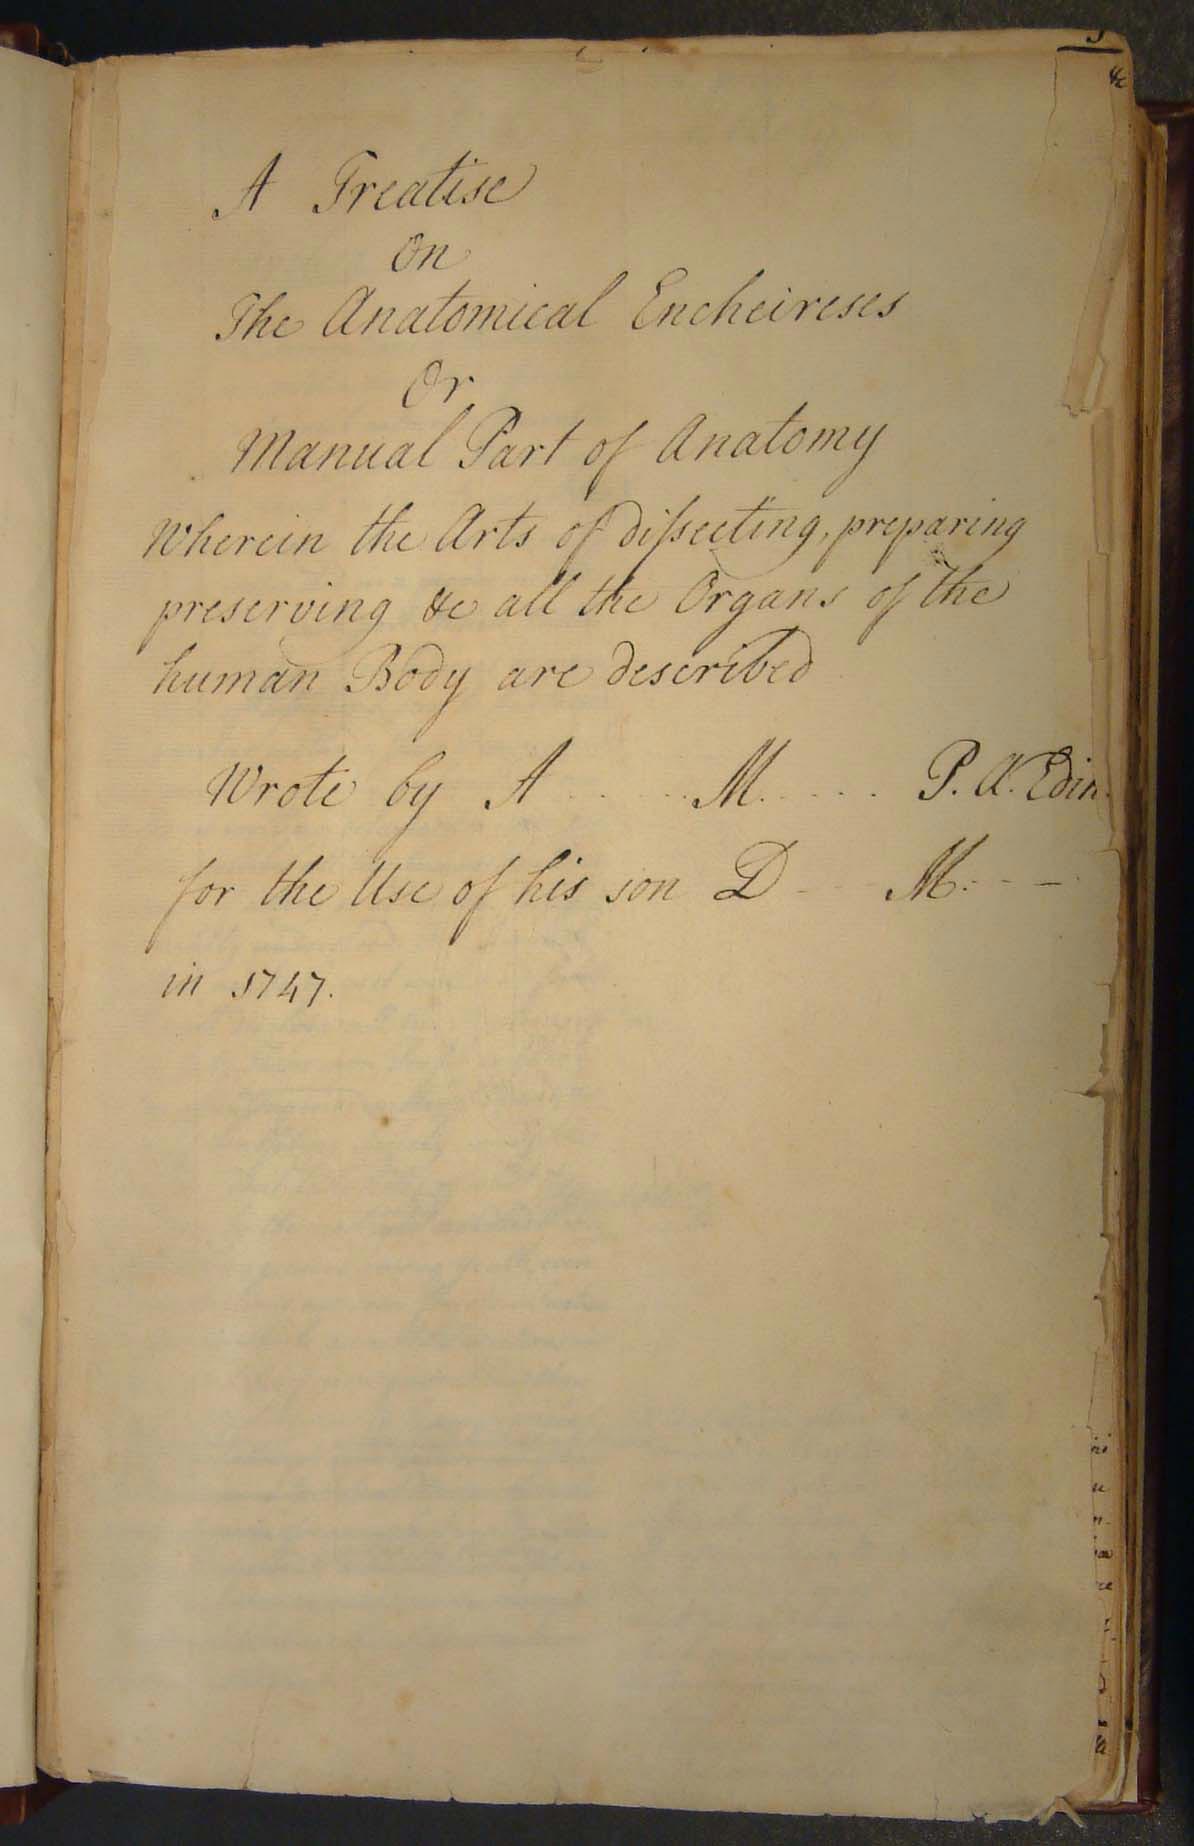 A Treatise
On
The Anatomical Encheireses
Or
Manual Part of Anatomy
Wherein the Arts of diſsecting, preparing
preserving &c all the Organs of the
human Body are described
Wrote by A - - - - M. - - - - P. A. Edin.
for the Use of his son D - - - M. - - -
in 1747.